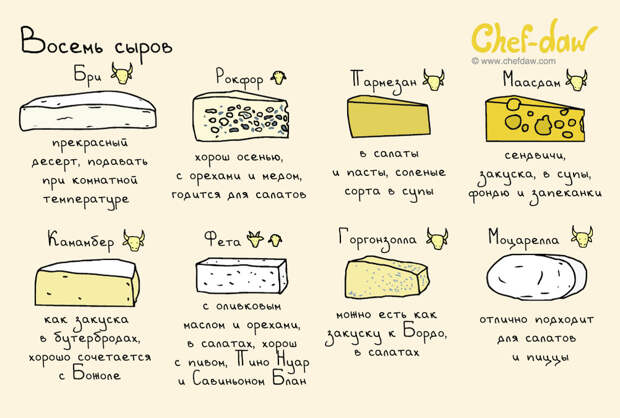 Восемь сыров
Chef-daw
© www.chefdaw.com
Бри
прекрасный
десерт, подавать
при комнатной
температуре
Рокфор
хорош осенью,
с орехами и медом,
годится для салатов
Пармезан
в салаты
и пасты, соленые
сорта в супы
Маасдам
сендвичи,
закуска, в супы,
фондю и запеканки
Камамбер
как закуска
в бутербродах,
хорошо сочетается
с Божоле
Фета
с оливковым
маслом и орехами,
в салатах, хорош
с пивом, Пино Нуар
и Савиньоном Блан
Горгонзолла
можно есть как
закуску к Бордо,
в салатах
Моцарелла
отлично подходит
для салатов
и пиццы